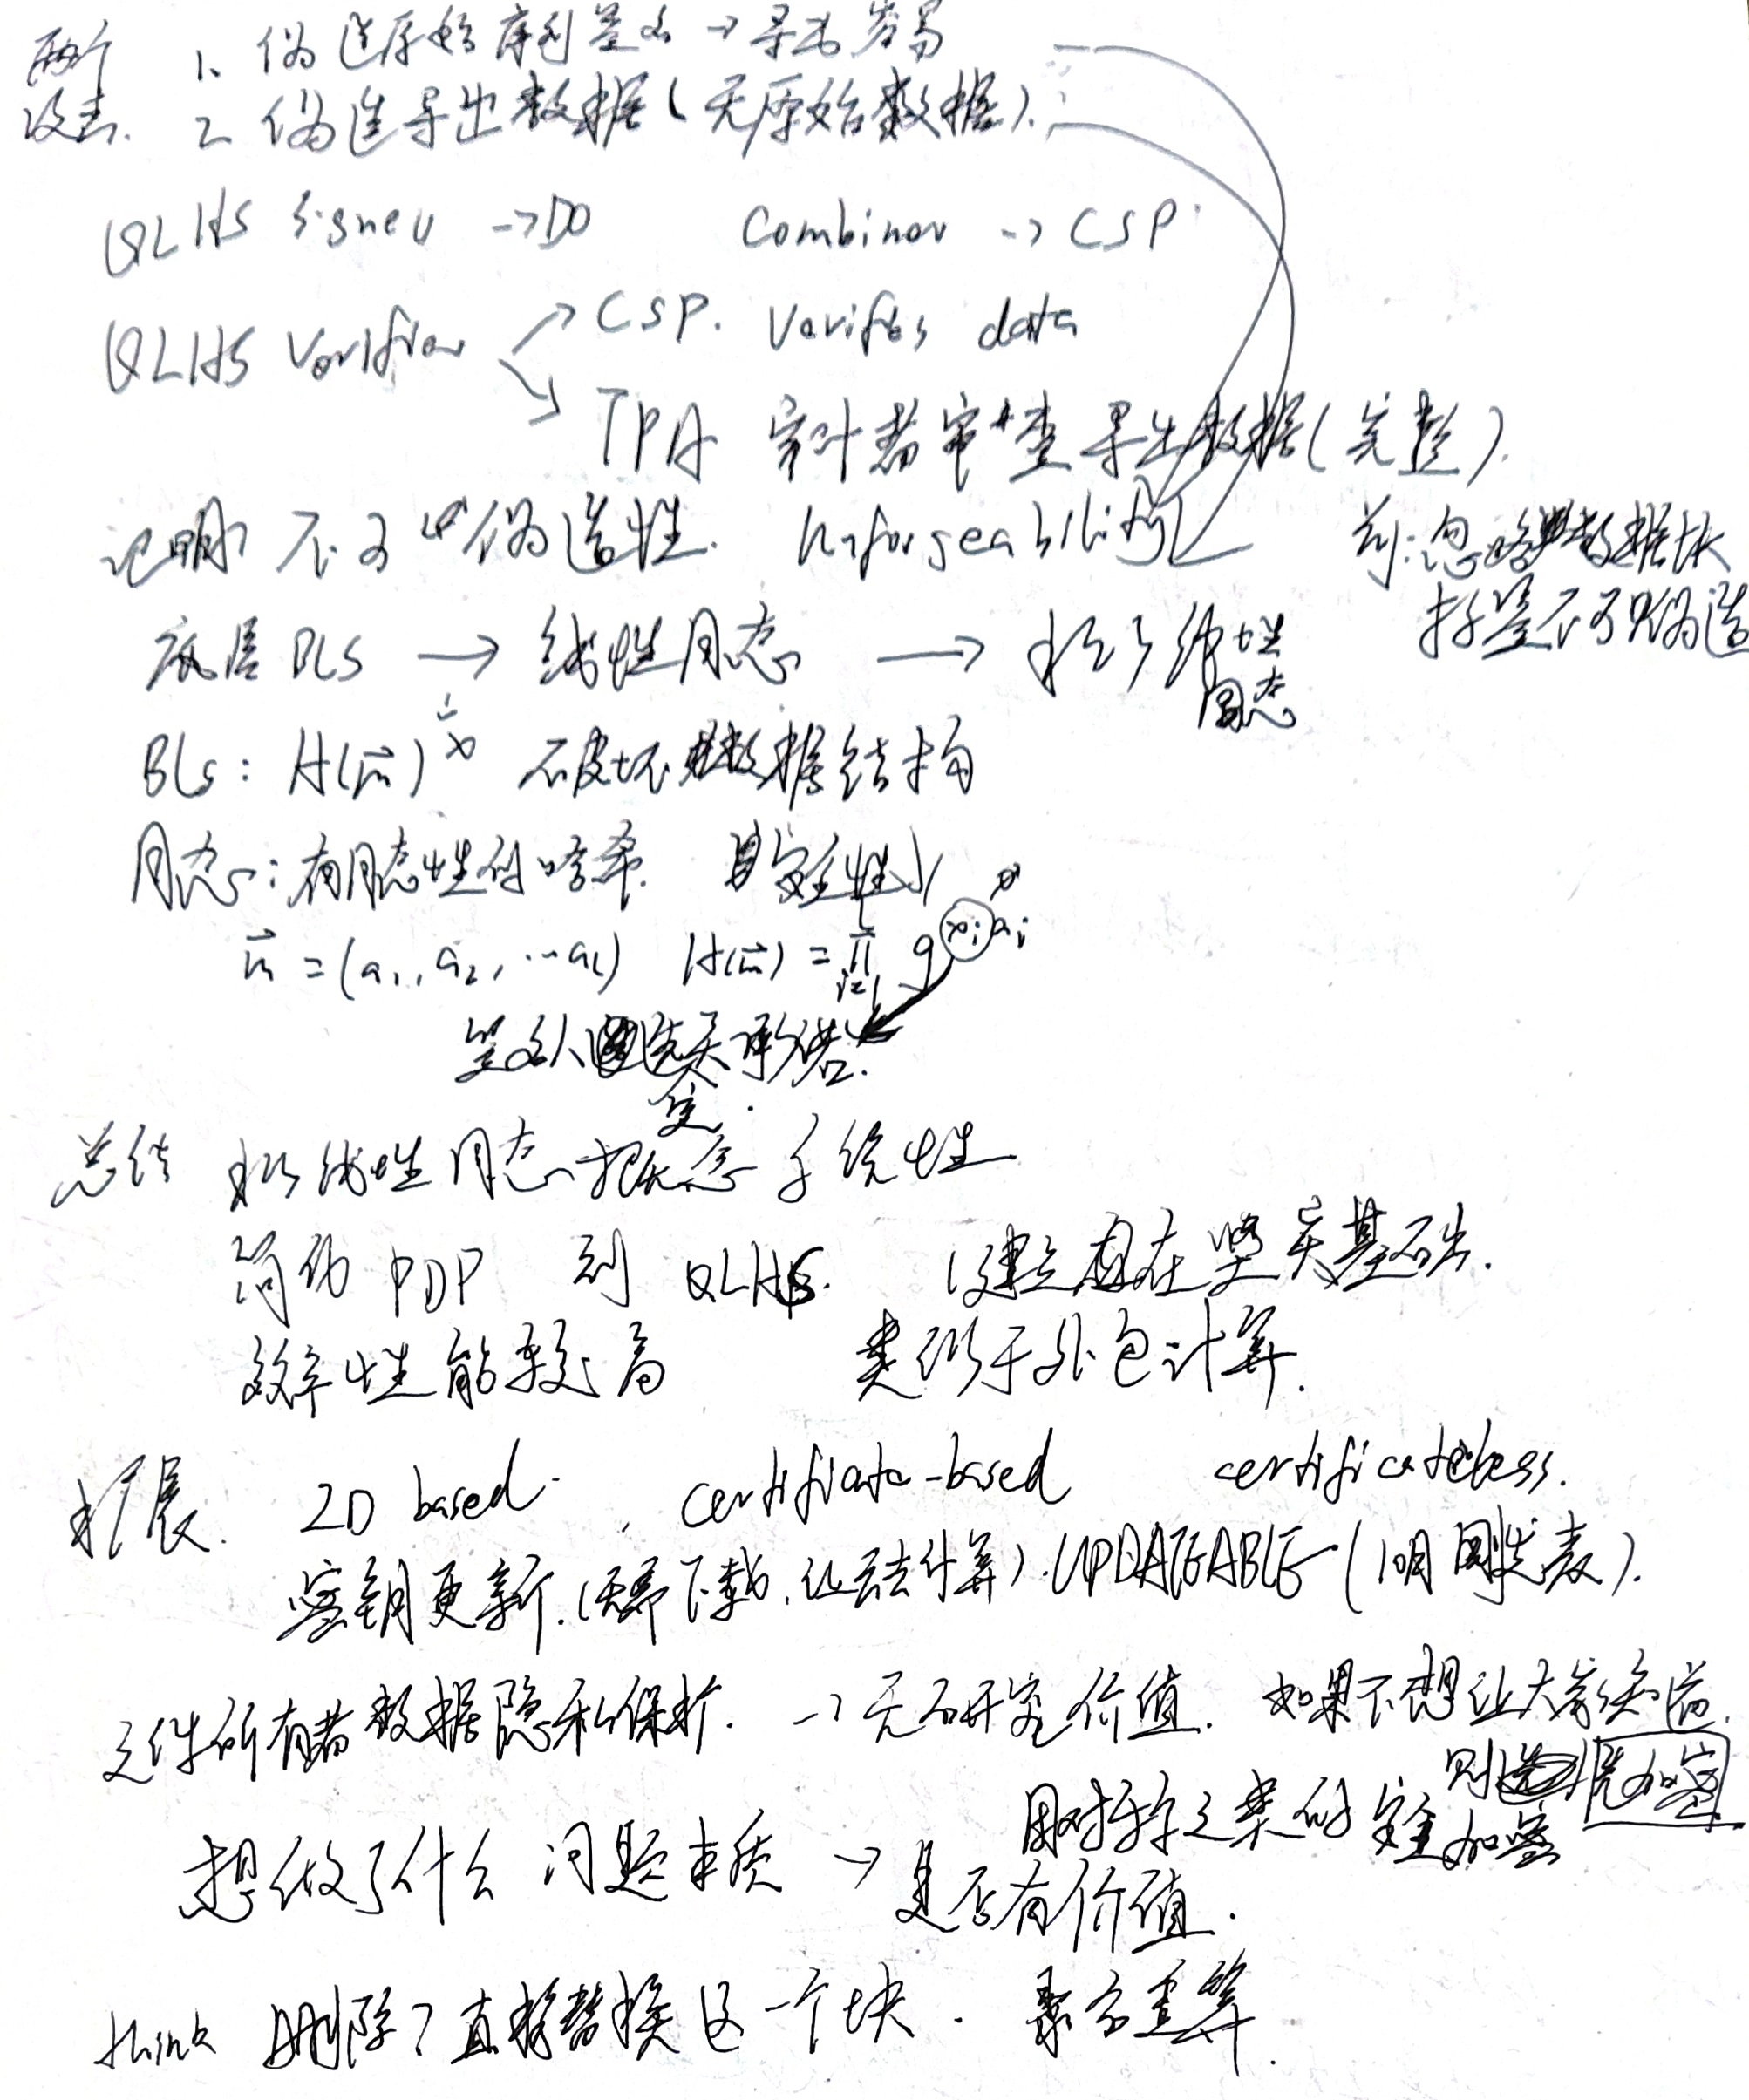 两个 1、伪造原始序列签名 → 导出容易
攻击. 2 伪造导出数据(无原始数据).
QLHS signer → DO Combiner → CSP.
QLHS Verifier CSP. Verifies data
TPA 审计者审查导出数据(完整).
证明 不可伪造性. Unforgeability 前:忽略数据块
标签不可伪造
底层 BLS → 线性同态 → 拟线性
同态
BLS: H(m⃗)^x 不破坏数据结构
同态:有同态性的哈希. 安全性
m⃗ = (a₁, a₂, … aₗ) H(m⃗) = ∏ i=1 g^{x_i a_i}
承诺.
总结 拟线性同态概念 系统性
简约 PDP 到 QLHS. (建立在坚实基础.
效率性能较高 类似于外包计算.
扩展. ID based. certificate-based certificateless.
密钥更新.(无需下载,让云去计算). UPDATEABLE (明).
文件所有者数据隐私保护. → 无研究价值. 如果不想让大家知道.
则 先加密
用对称之类的 加密
想做了什么 问题本质 → 是否有价值.
think 删除?直接替换这一个块. 聚合重算.